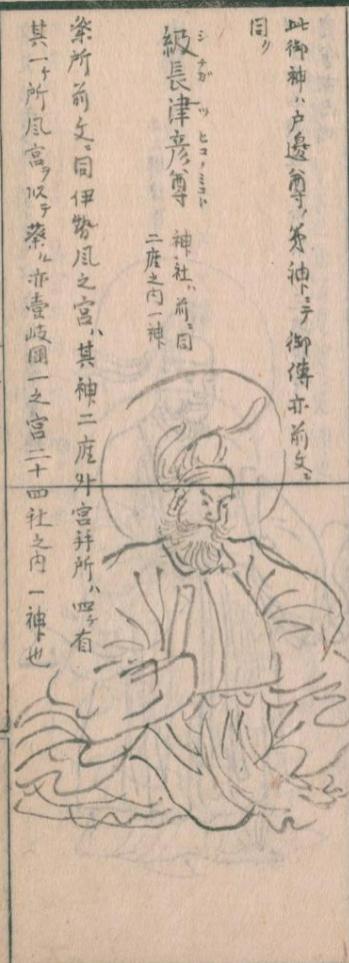 此御神ハ戸邊尊ノ男神ニテ御傳亦前文ニ
同ク
級長津彦尊
シナガツヒコノミコト
神社ハ前ニ同
二座之内一神
祭所前文ニ同伊勢風之宮ハ其神二座外宮拝所ハ四ヶ有
其一ヶ所風宮ヲ以テ祭ル亦壹岐國一之宮二十四社之内一神也